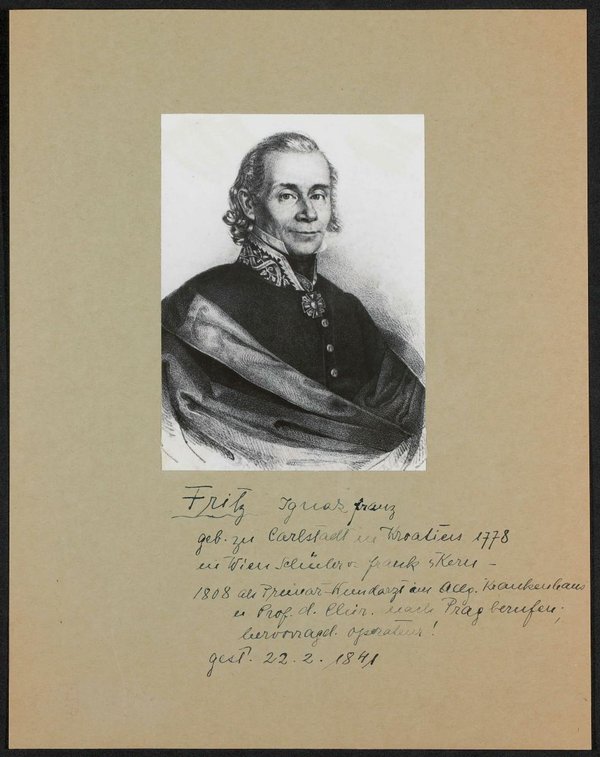 Fritz Ignaz Franz
geb. zu Carlstadt in Kroatien 1778
in Wien Schüler v. Frank u Kern -
1808 als Primar-Wundarzt am Allg. Krankenhaus
u Prof. d. Chir. nach Prag berufen;
hervorragd. Operateur!
gest. 22. 2. 1841